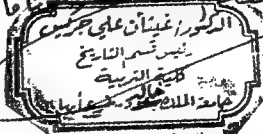 الدكتور/غيثان علي جريس
رئيس قسم التاريخ
كلية التربية
جامعة الملك خالد أبها